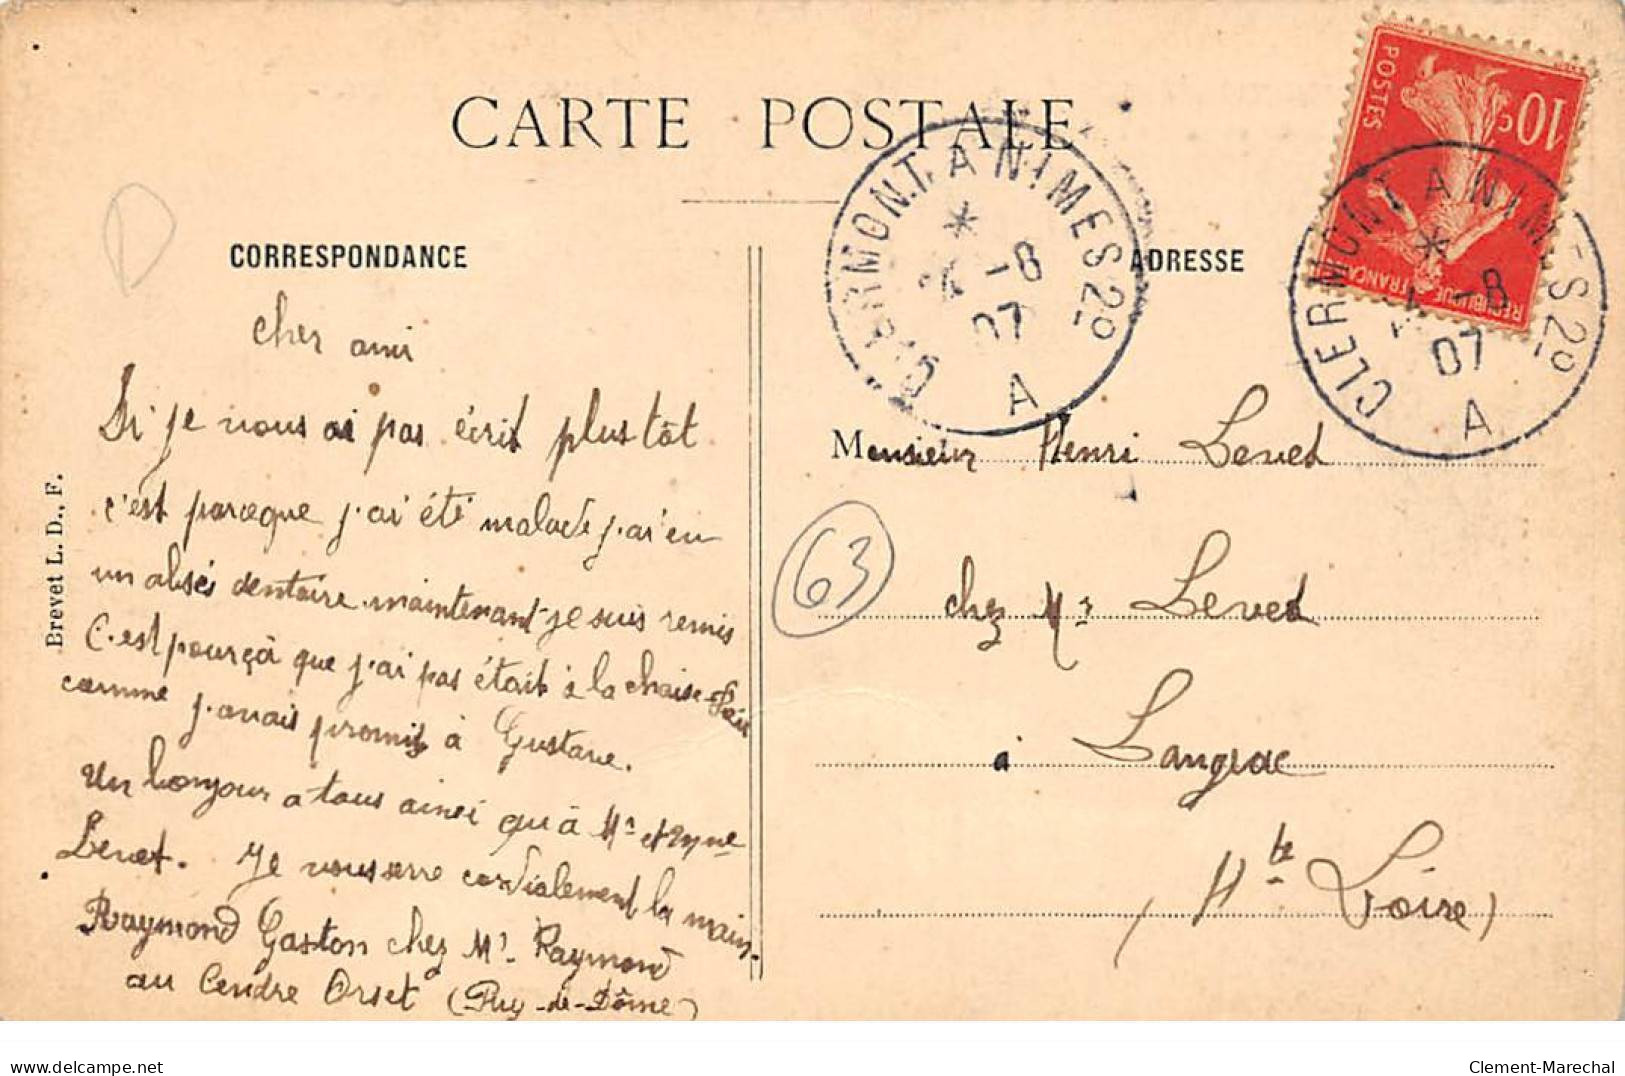 CARTE POSTALE
CORRESPONDANCE
ADRESSE
cher ami
Si je vous ai pas écrit plus tôt
c'est parceque j'ai été malade j'ai eu
un absés dentaire maintenant je suis remis
C'est pourçà que j'ai pas était à la chaise-Dieu
comme j'avais promis à Gustave.
Un bonjour a tous ainsi qu'à Mr et Mme
Levet. Je vous serre cordialement la main.
Raymond Gaston chez Mr Raymond
au Cendre Orset (Puy-de-Dôme)
Brevet L. D., F.
Monsieur Henri Levet
chez Mr Levet
à Langeac
(Hte Loire)
63
D
CLERMONT A NIMES 2°
4 -8
07
A
CLERMONT A NIMES 2°
4 -8
07
A
POSTES
10c
REPUBLIQUE FRANCAISE
www.delcampe.net
Clement-Marechal